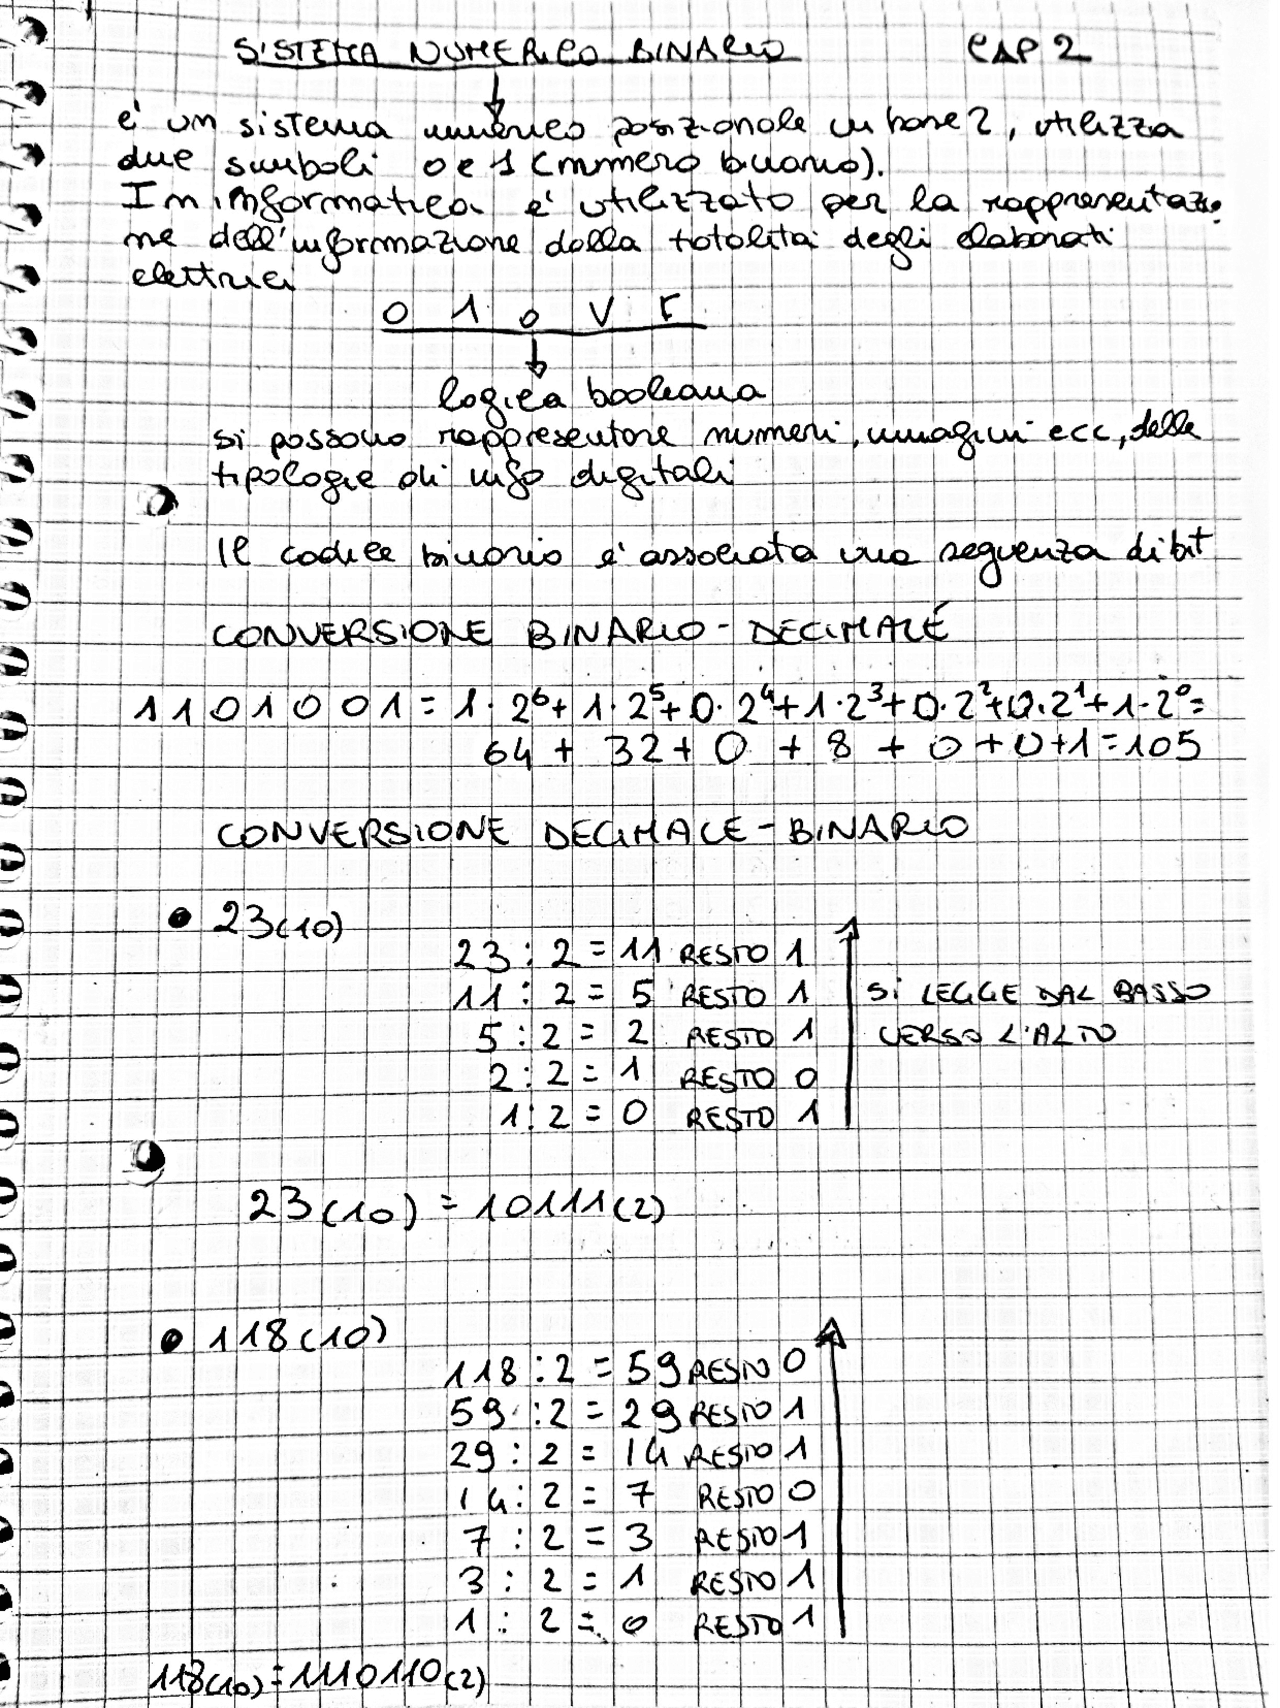 SISTEMA NUMERICO BINARIO CAP 2
è un sistema numerico posizionale in base 2, utilizza
due simboli 0 e 1 (numero binario).
In informatica è utilizzato per la rappresentazio
ne dell'informazione dalla totalità degli elaborati
elettrici
0 1 o V F
logica booleana
si possono rappresentare numeri, immagini ecc, delle
tipologie di info digitali
Il codice binario è associata una sequenza di bit
CONVERSIONE BINARIO - DECIMALE
1101001 = 1·2⁶+1·2⁵+0·2⁴+1·2³+0·2²+0·2¹+1·2⁰=
64 + 32 + 0 + 8 + 0 + 0 + 1 = 105
CONVERSIONE DECIMALE - BINARIO
• 23(10)
23 : 2 = 11 RESTO 1
11 : 2 = 5 RESTO 1 SI LEGGE DAL BASSO
5 : 2 = 2 RESTO 1 VERSO L'ALTO
2 : 2 = 1 RESTO 0
1 : 2 = 0 RESTO 1
23(10) = 10111(2)
• 118(10)
118 : 2 = 59 RESTO 0
59 : 2 = 29 RESTO 1
29 : 2 = 14 RESTO 1
14 : 2 = 7 RESTO 0
7 : 2 = 3 RESTO 1
3 : 2 = 1 RESTO 1
1 : 2 = 0 RESTO 1
118(10) = 1110110(2)